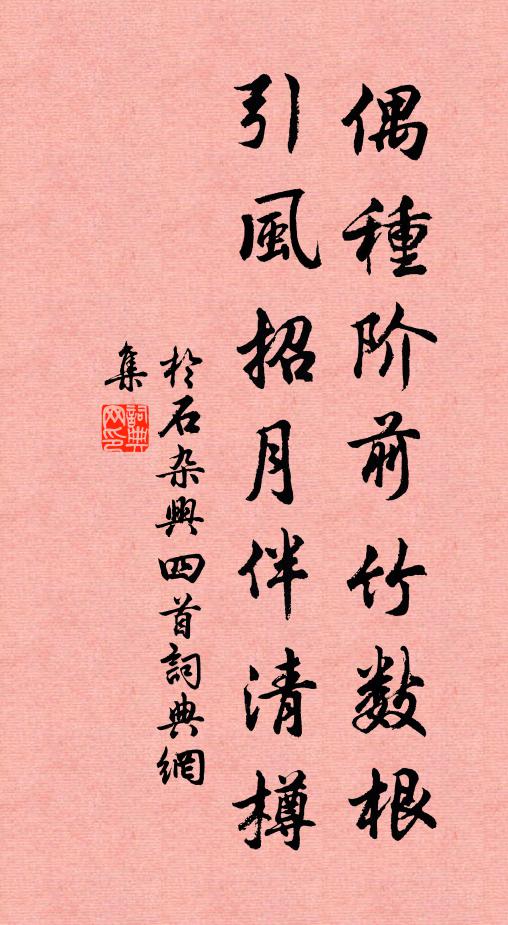 偶種阶前竹数根
引風招月伴清樽
於石杂興四首詞典網
集
詞典
网印